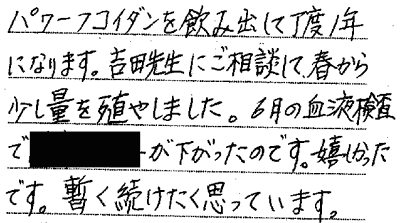 パワーフコイダンを飲み出して丁度1年
になります。吉田先生にご相談して、春から
少し量を殖やしました。6月の血液検査
で が下がったのです。嬉しかった
です。暫く続けたく思っています。